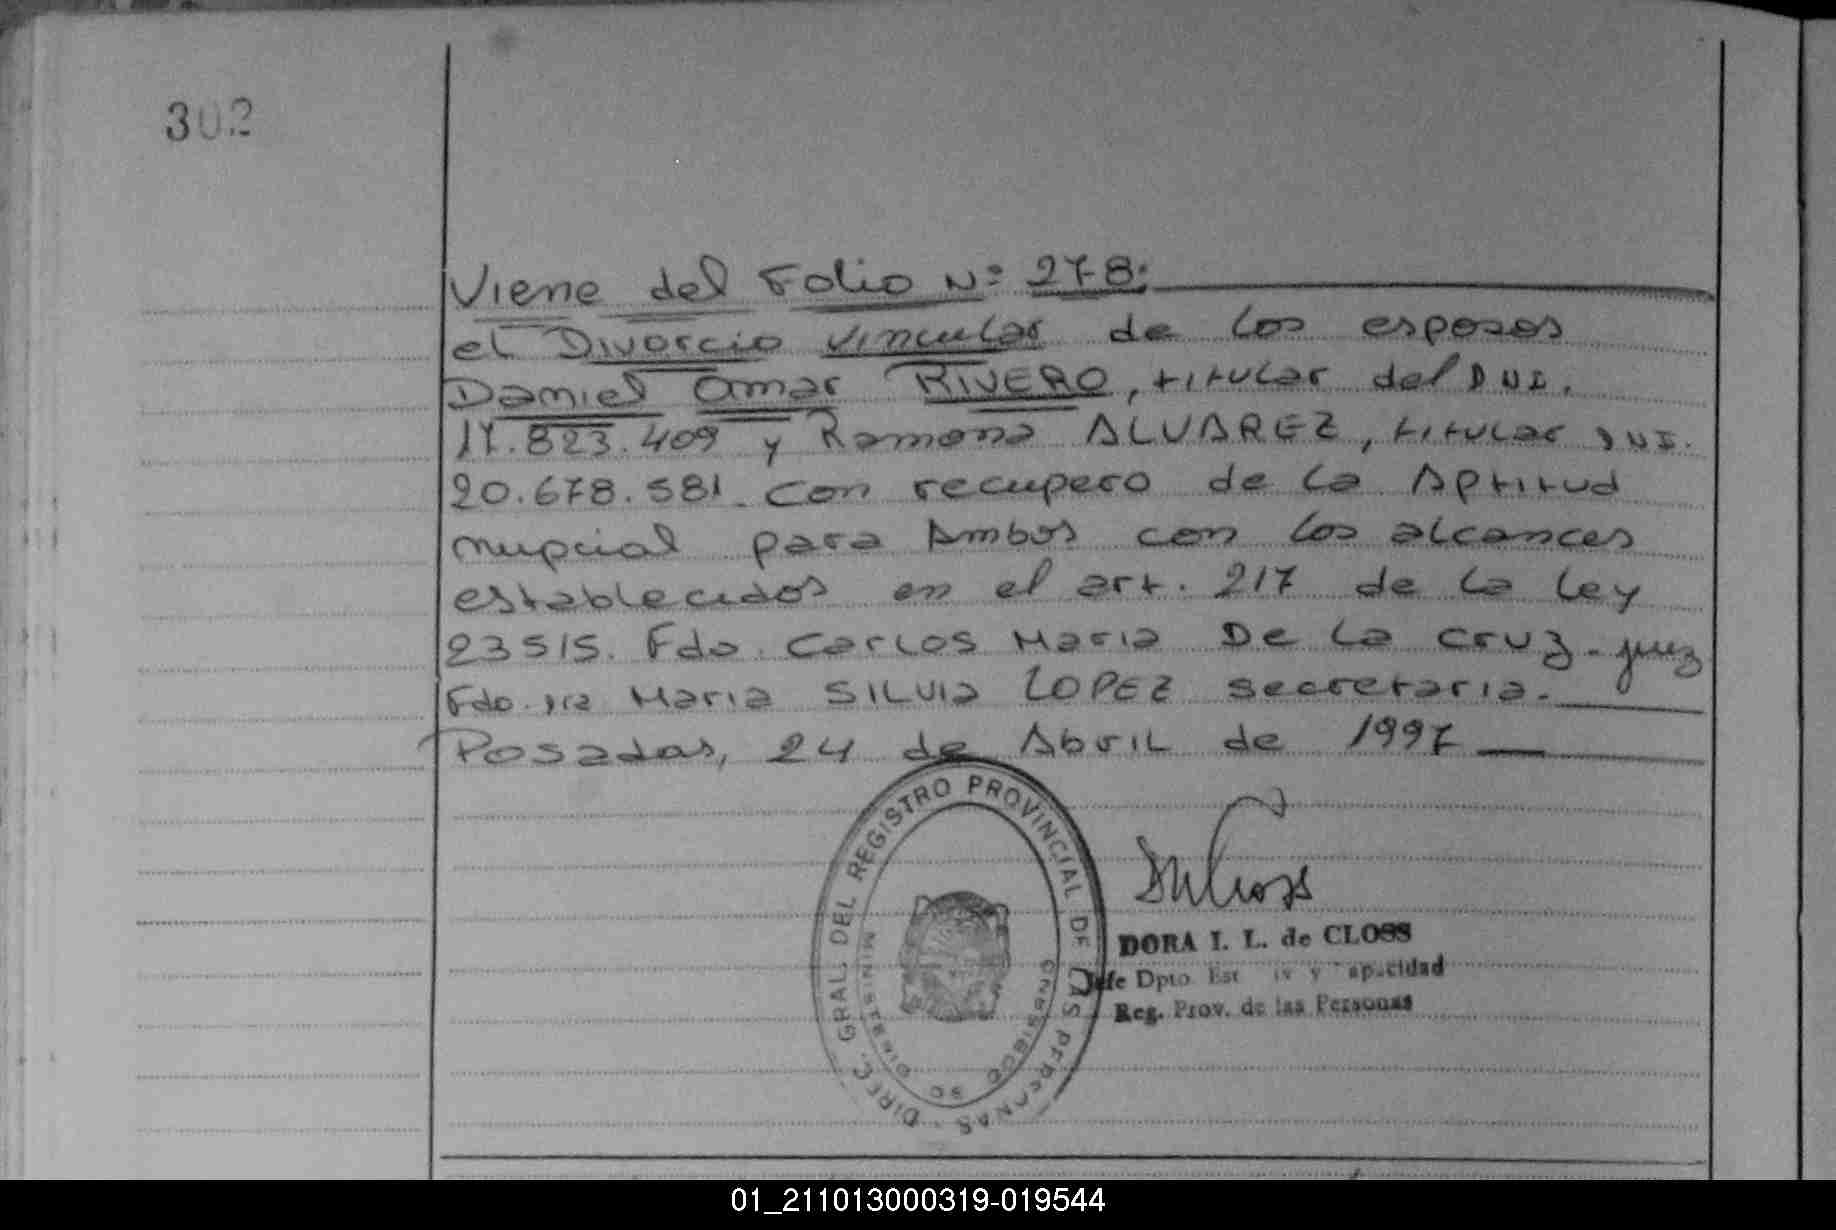 302
Viene del Folio Nº 278:
el Divorcio vincular de los esposos
Daniel Omar RIVERO, titular del DNI.
17.823.409 y Ramona ALVAREZ, titular DNI.
20.678.581. con recupero de la Aptitud
nupcial para Ambos con los alcances
establecidos en el art. 217 de la Ley
23515. Fdo. Carlos Maria De La Cruz - juez
Fdo. Dra Maria SILVIA LOPEZ secretaria.
Posadas, 24 de Abril de 1997
DIREC. GRAL. DEL REGISTRO PROVINCIAL DE LAS PERSONAS
MINISTERIO DE GOBIERNO
DORA I. L. de CLOSS
Jefe Dpto. Est y Capacidad
Reg. Prov. de las Personas
01_211013000319-019544